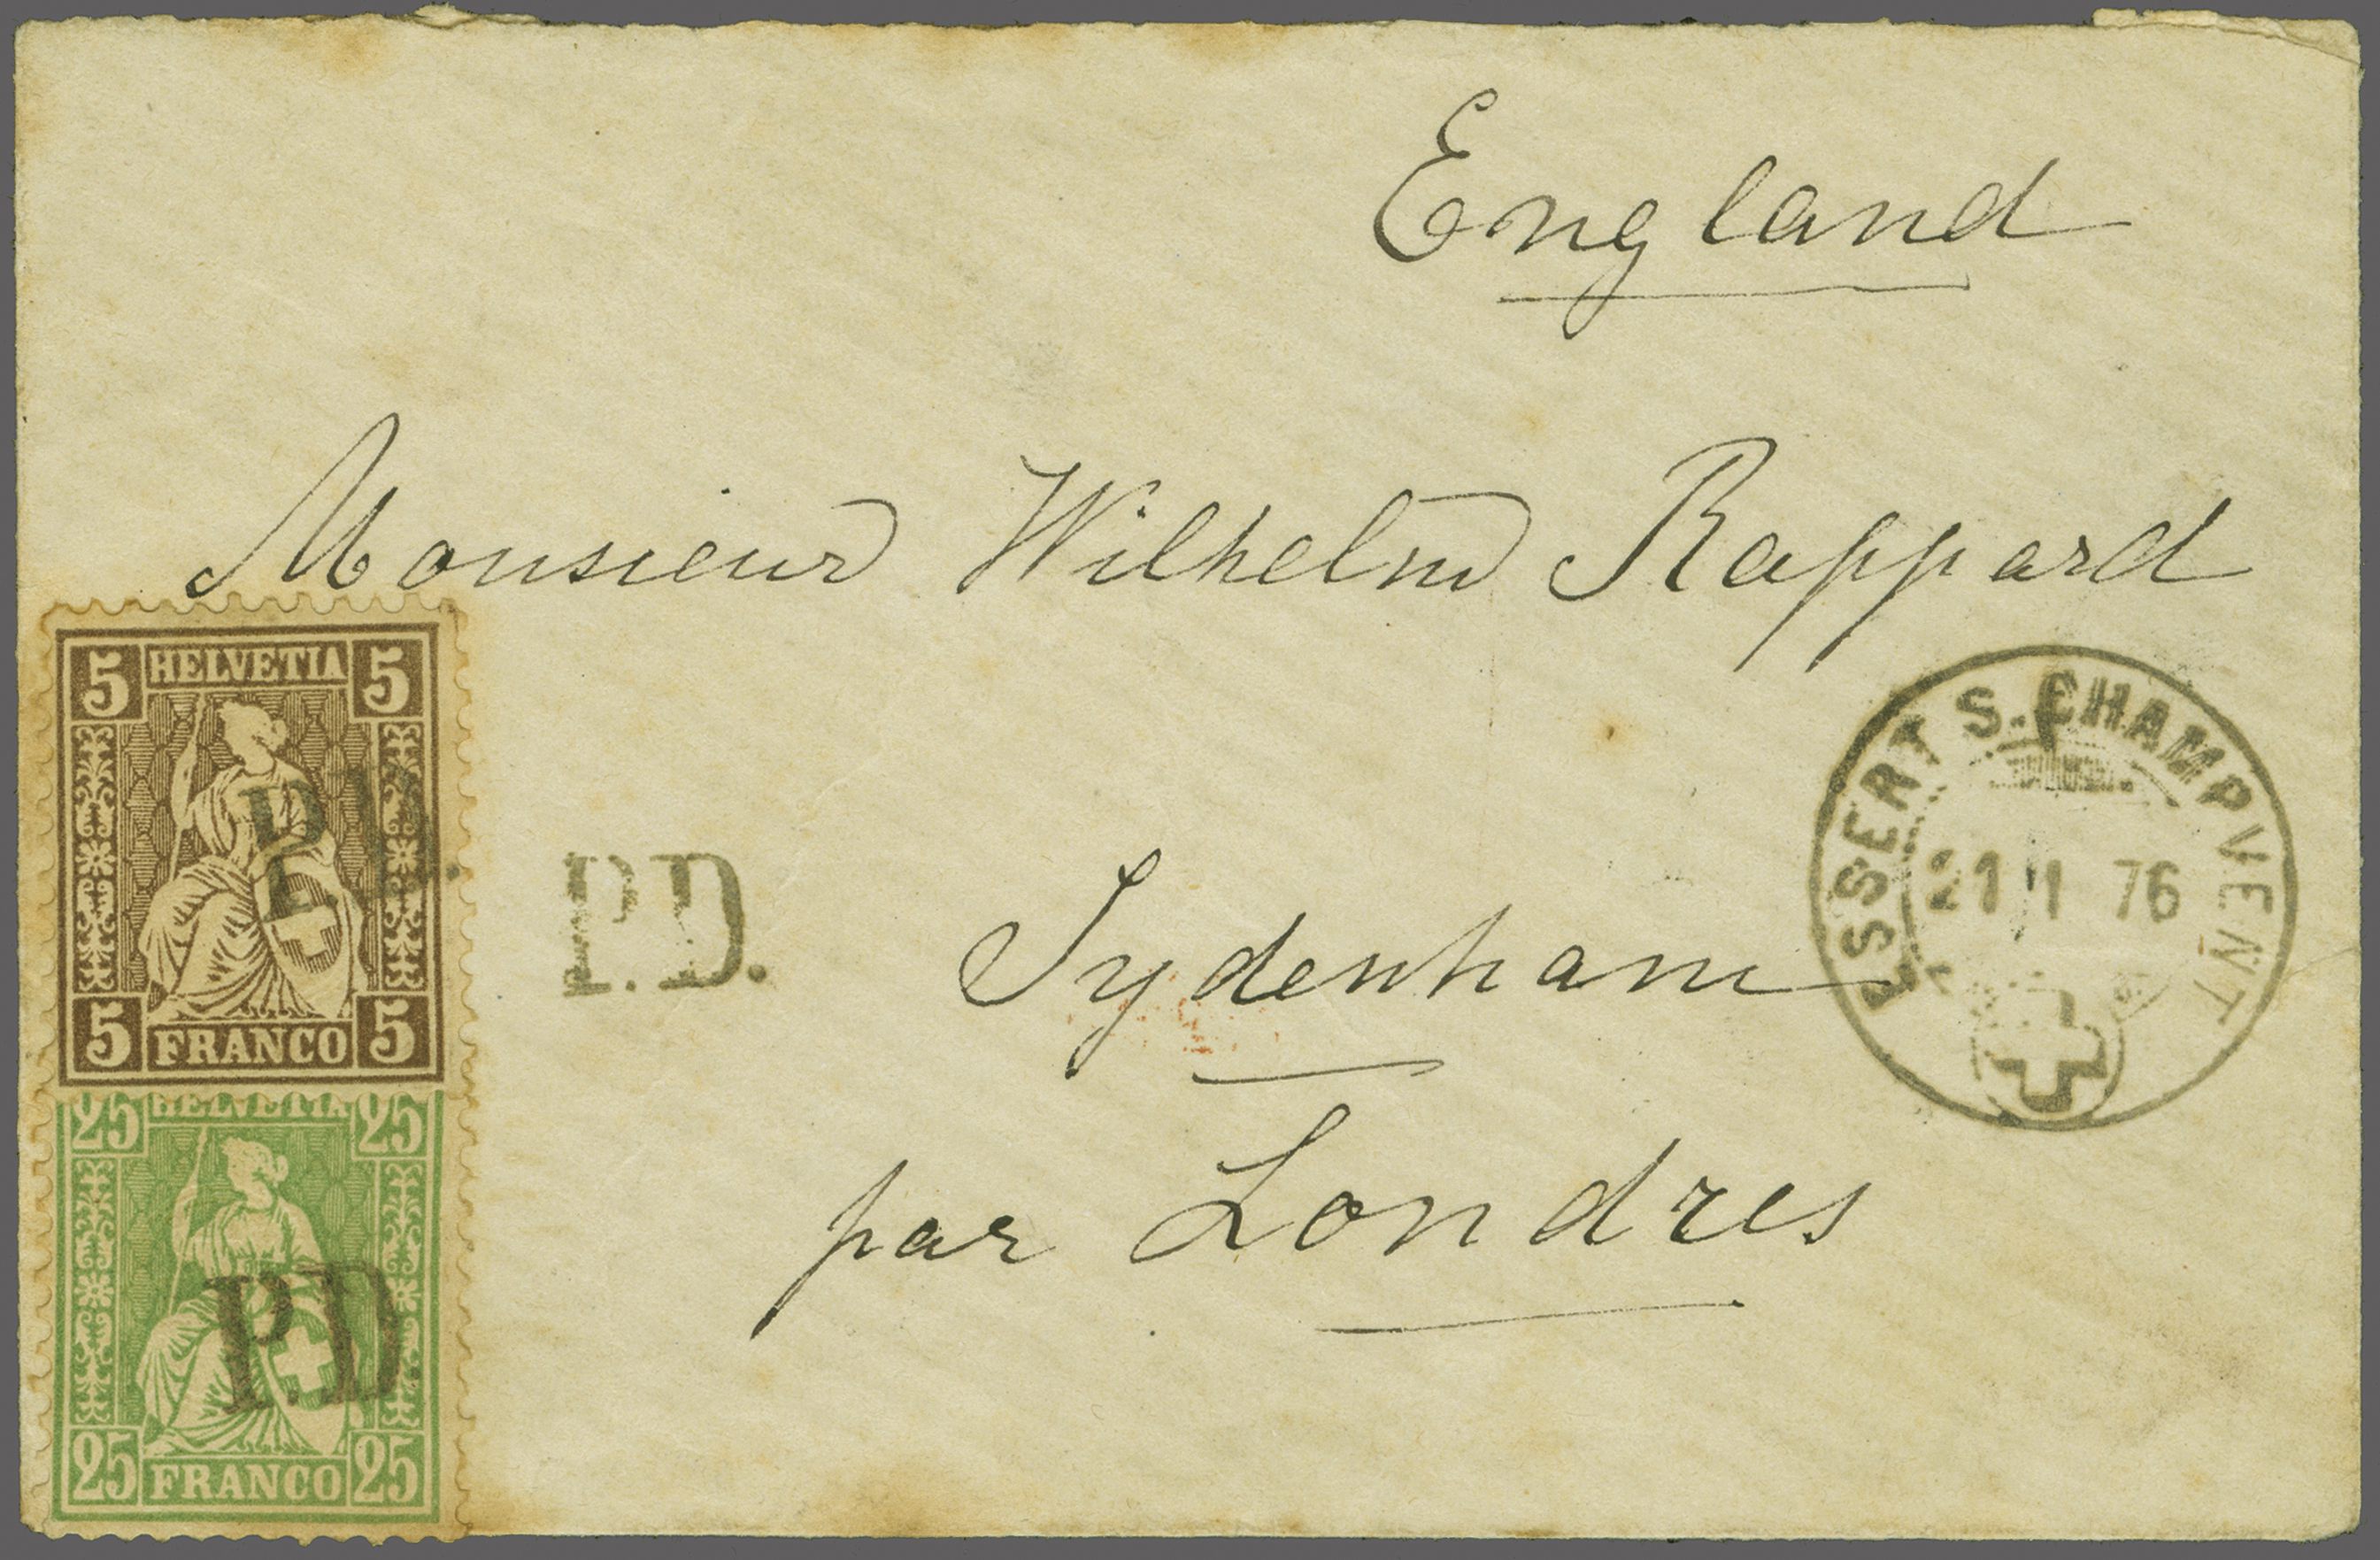 England
Monsieur Wilhelm Rappard
5 HELVETIA 5
P.D.
5 FRANCO 5
P.D.
ESSERT S. CHAMPVENT
21 1 76
Sydenham
par Londres
25 HELVETIA 25
P.D.
25 FRANCO 25